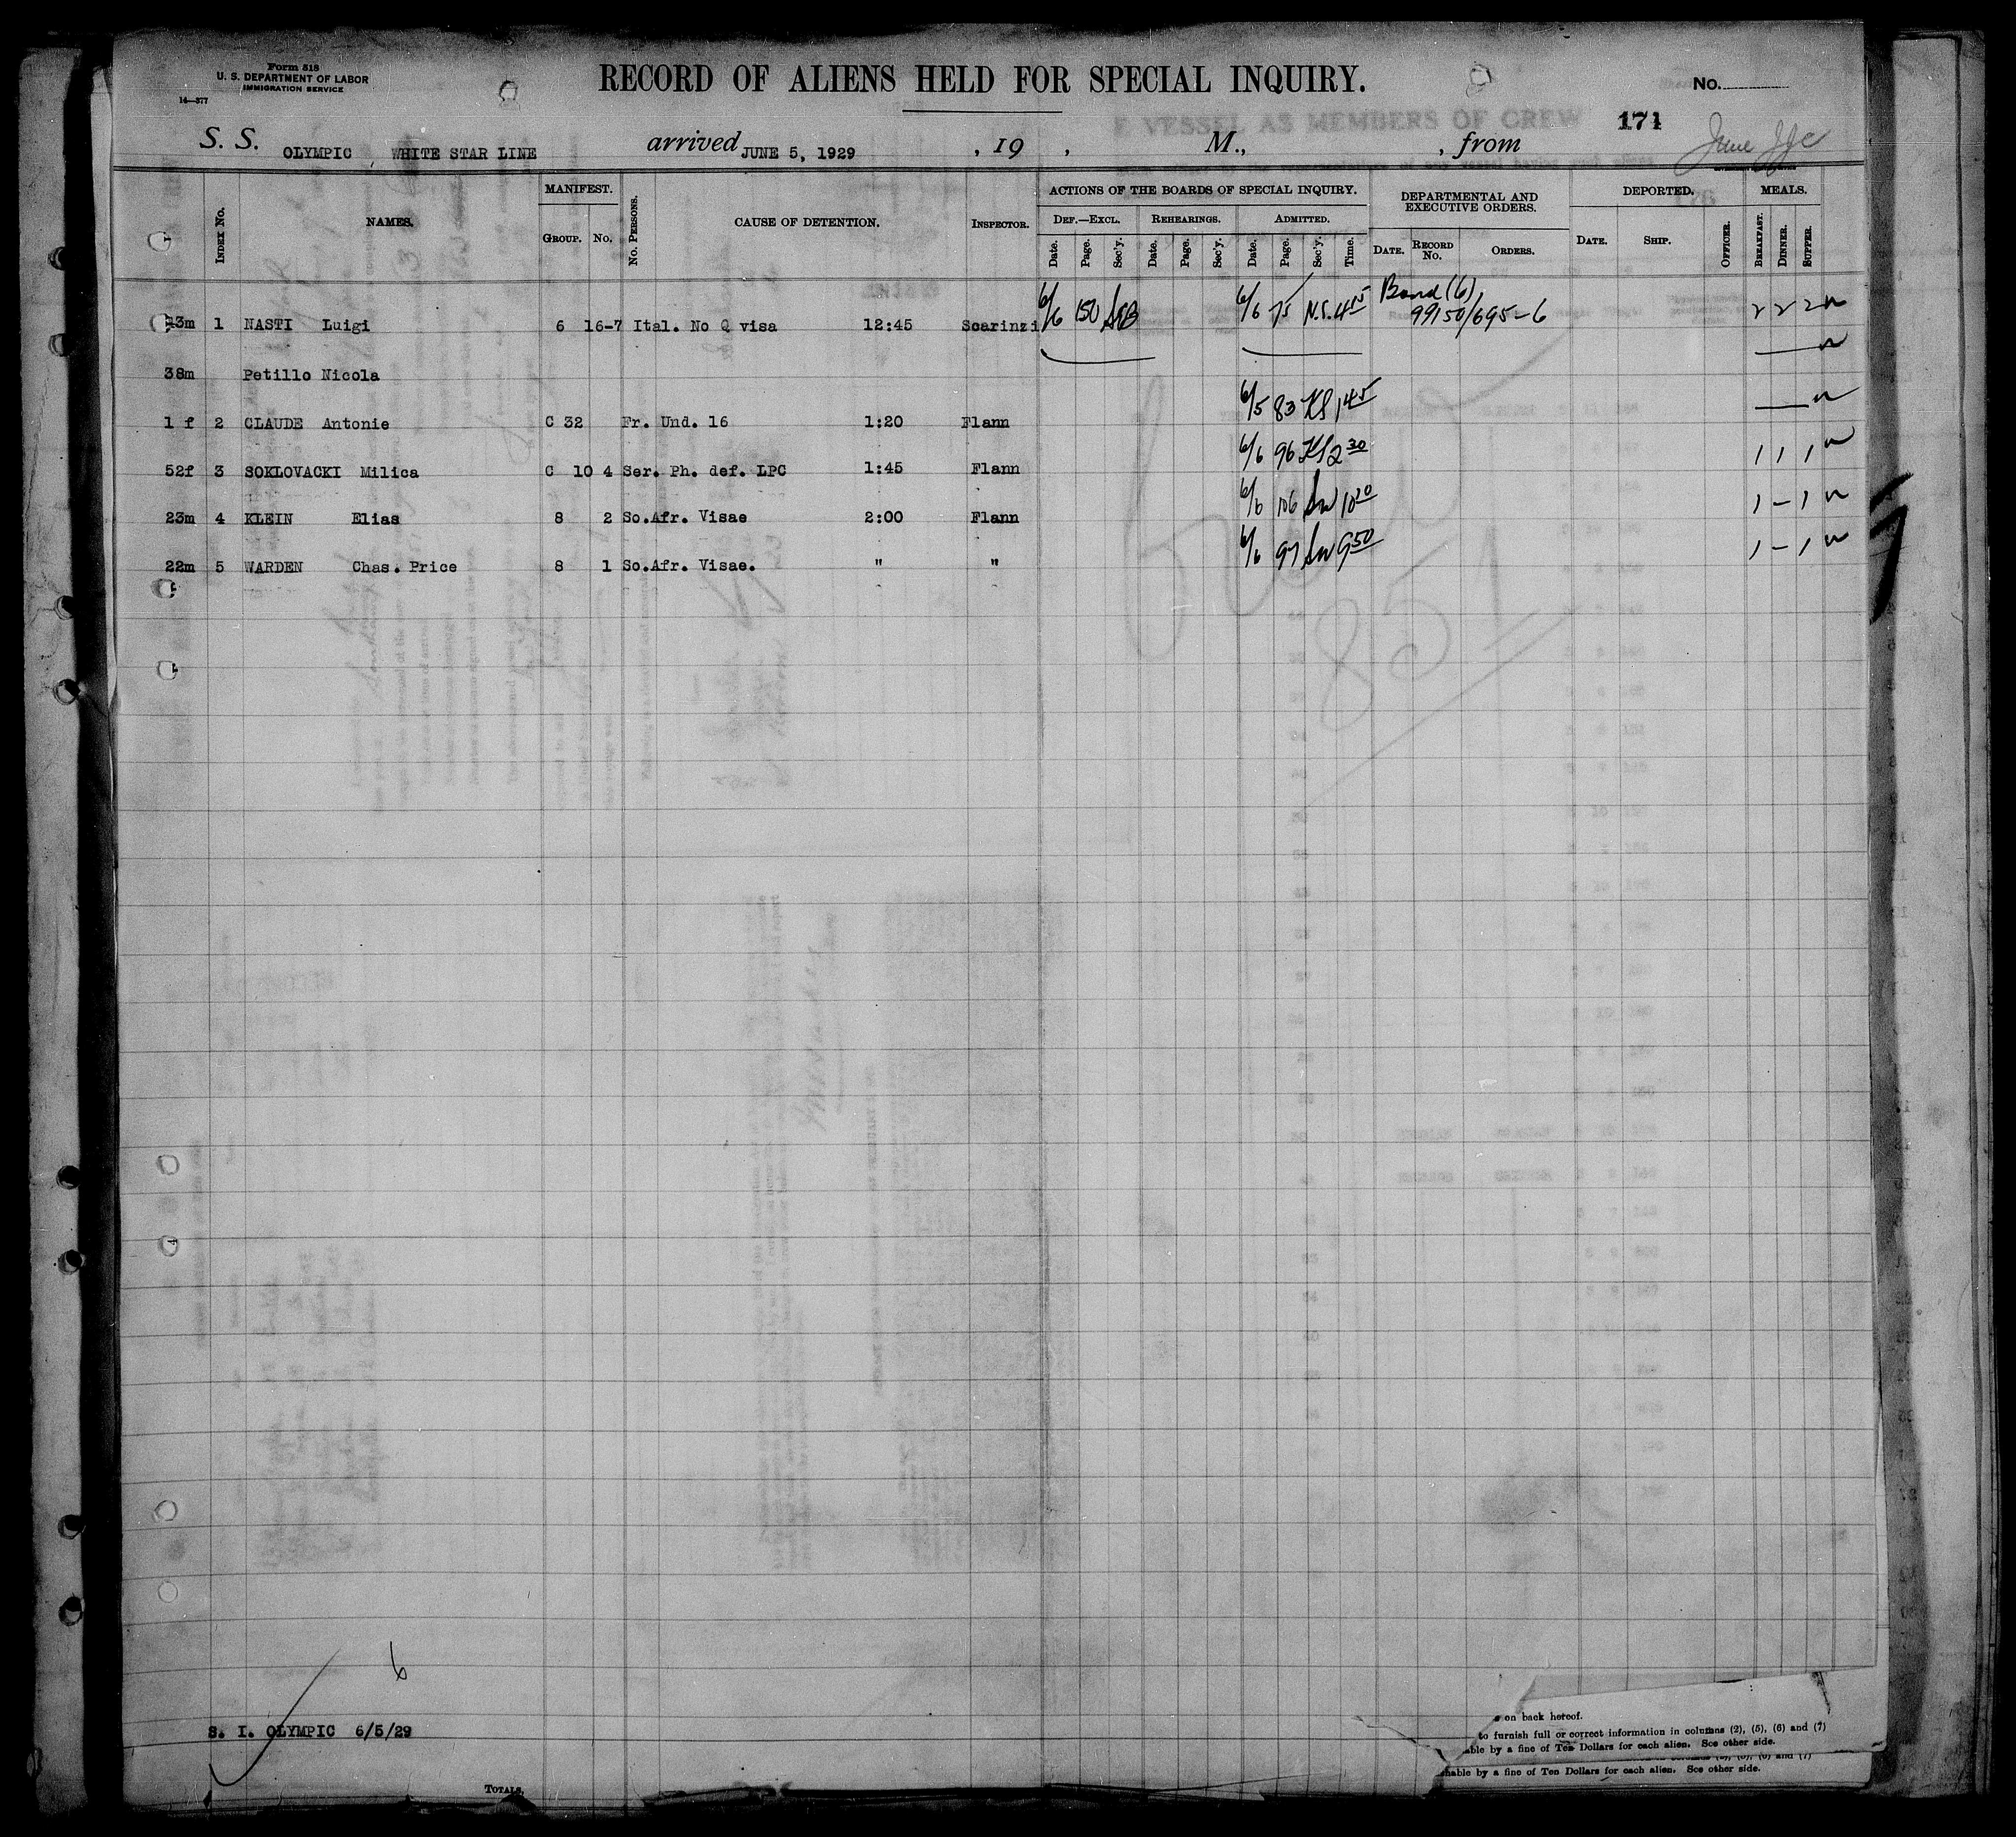 Form 518
U. S. DEPARTMENT OF LABOR
IMMIGRATION SERVICE
14—377
RECORD OF ALIENS HELD FOR SPECIAL INQUIRY.
No.
171
S. S. OLYMPIC , WHITE STAR LINE arrived JUNE 5, 1929 , 19 , M., , from
E VESSEL AS MEMBERS OF CREW
INDEX No. NAMES. MANIFEST. GROUP. No. No. PERSONS. CAUSE OF DETENTION. INSPECTOR. ACTIONS OF THE BOARDS OF SPECIAL INQUIRY. DEPARTMENTAL AND EXECUTIVE ORDERS. DEPORTED. MEALS.
DEF.—EXCL. REHEARINGS. ADMITTED.
Date. Page. Sec'y. Date. Page. Sec'y. Date. Page. Sec'y. Time. DATE. RECORD No. ORDERS. DATE. SHIP. OFFICER. BREAKFAST. DINNER. SUPPER.
Bond (6)
1 NASTI Luigi 6 16-7 Ital. No Q visa 12:45 Scarinzi 6/6 150 6/6 75 N.S. 4 15 99150/695-6 2 2 2
38m Petillo Nicola
1 f 2 CLAUDE Antonie C 32 Fr. Und. 16 1:20 Flann 6/5 83 KS 1 45
52f 3 SOKLOVACKI Milica C 10 4 Ser. Ph. def. LPC 1:45 Flann 6/6 96 KS 2 30 1 1 1
23m 4 KLEIN Elias 8 2 So.Afr. Visae 2:00 Flann 6/6 106 10 20 1 - 1
22m 5 WARDEN Chas. Price 8 1 So.Afr. Visae. " " 6/6 97 9 50 1 - 1
6
S. I. OLYMPIC 6/5/29
TOTALS,
on back hereof.
to furnish full or correct information in columns (2), (5), (6) and (7)
able by a fine of Ten Dollars for each alien. See other side.
hable by a fine of Ten Dollars for each alien. See other side.